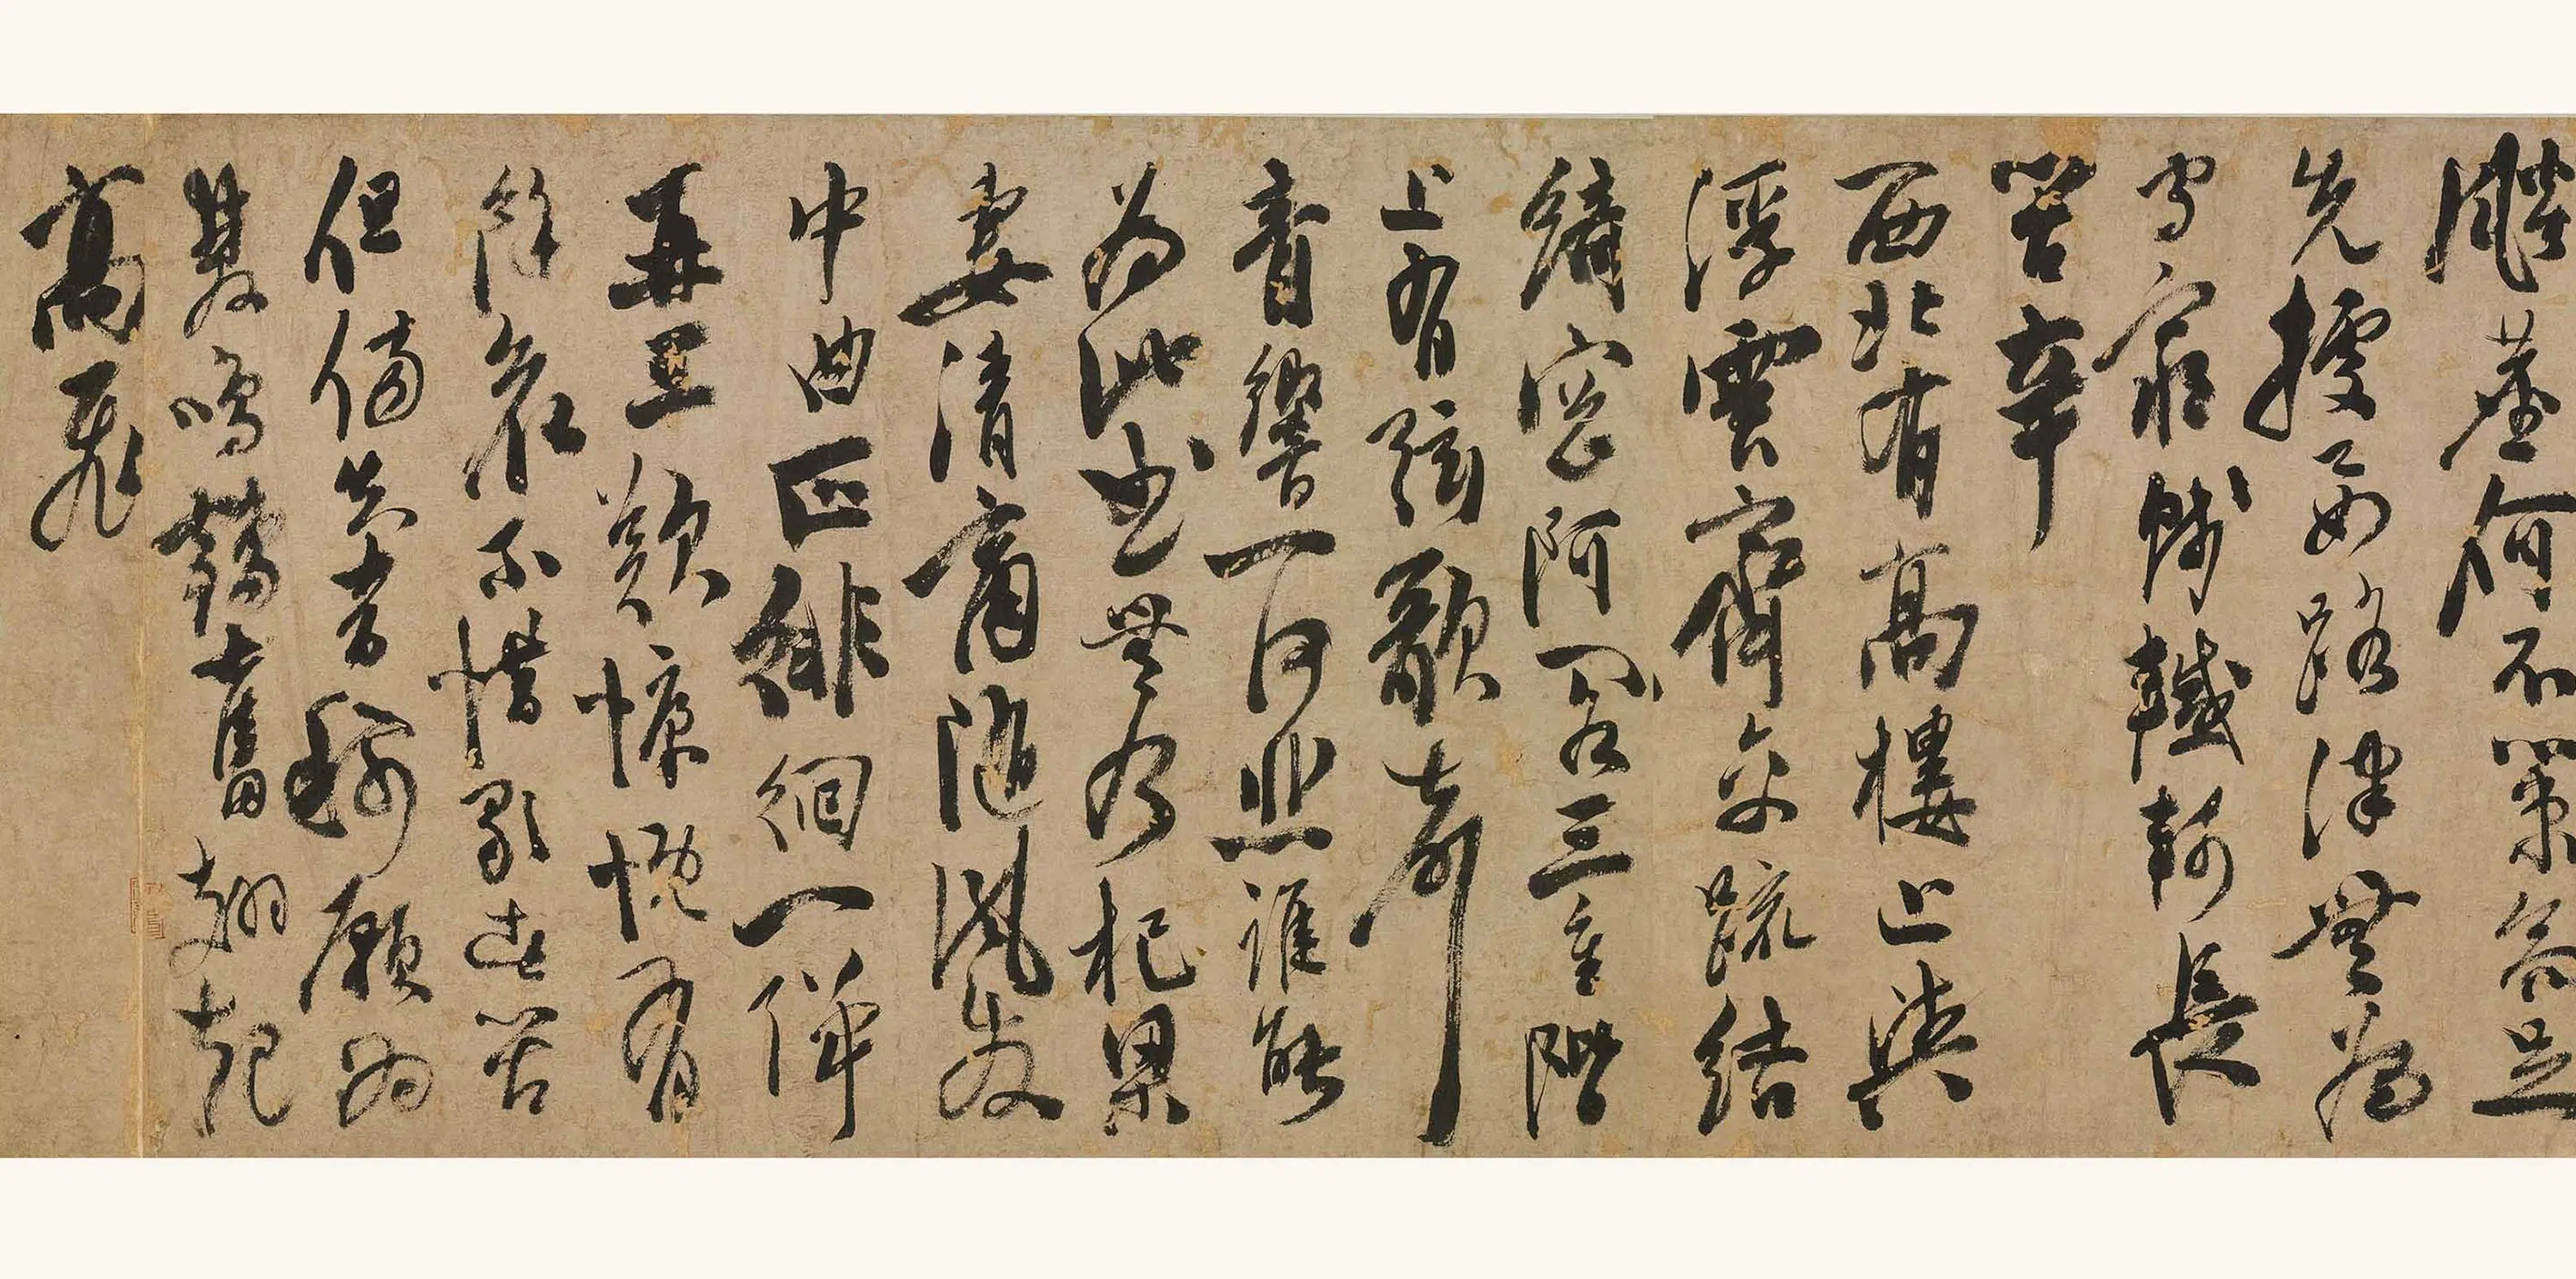 飈塵何不策高足
先據要路津無為
守窮賤轗軻長
苦辛
西北有高樓上與
浮雲齊交疏結
綺窓阿閣三重階
上有弦歌聲
音響一何悲誰能
為此曲無乃杞梁
妻清商隨風發
中曲正徘徊一彈
再三歎慷慨有
餘哀不惜歌者苦
但傷知音稀願為
雙鳴鶴奮翅起
高飛